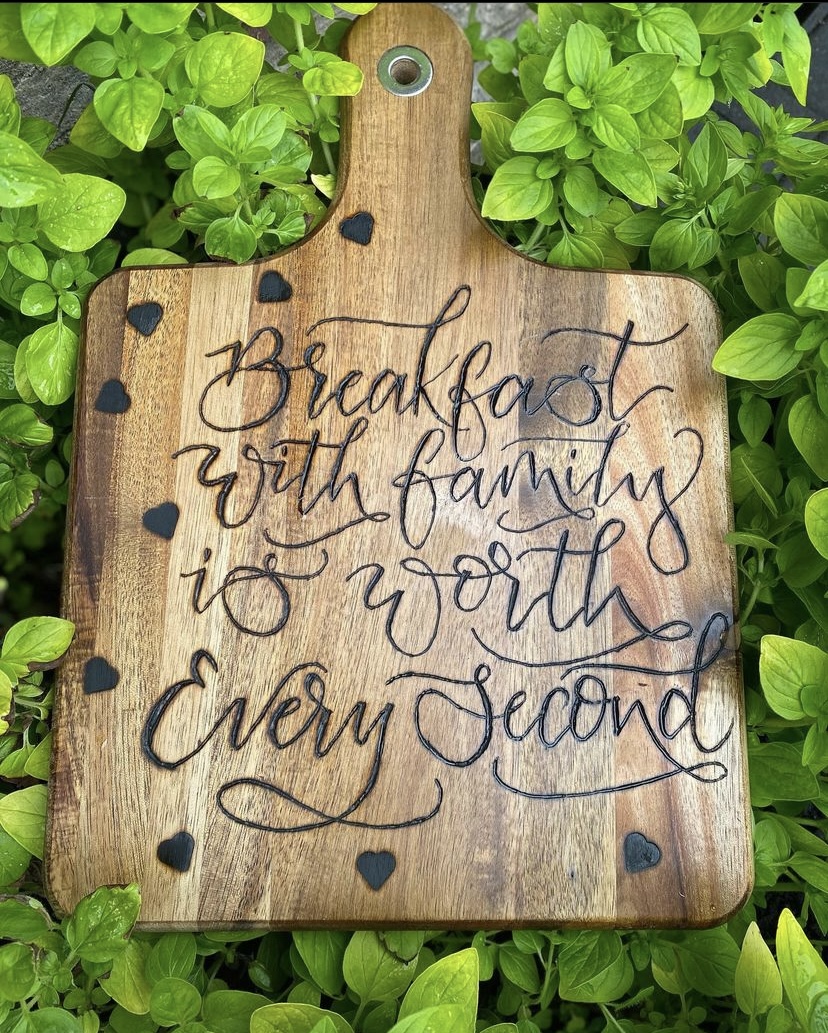 Breakfast
with family
is worth
Every Second